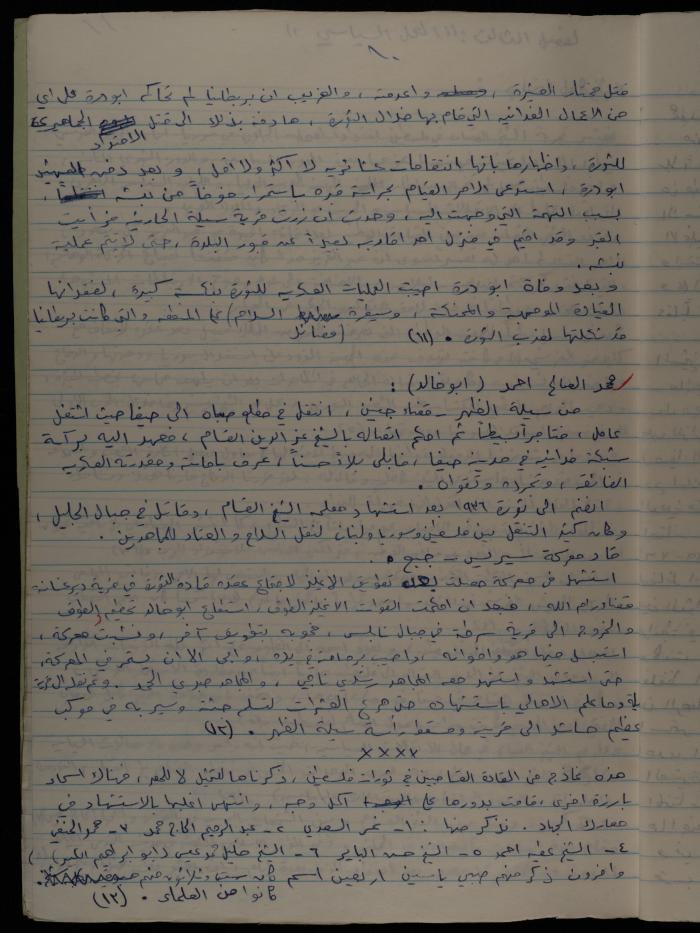 ٨٠
قتل مختار العشيرة ، واعدمته ، والغريب ان بريطانيا لم تحاكم ابو درة على اي
من الاعمال الفدائية التي قام بها خلال الثورة ، هادفة بذلك الى قتل الامتداد الجماهيري
للثورة ، واظهارها بانها انتقامات عشائرية لا اكثر ولا اقل ، و بعد دفن الشهيد
ابو درة ، استوعى الامر القيام بحراسة قبره باستمرار خوفاً من نبشه ،
بسبب التهمة التي وجهت اليه ، وحدث ان زرت قرية سيلة الحارثية فرأيت
القبر وقد اقيم في منزل احد اقاربه بعيداً عن قبور البلدة ، حتى لا يتم عملية
نبشه .
و بعد وفاة ابو درة اصيبت العمليات العسكرية للثورة بنكسة كبيرة ، لفقدانها
القيادة الموجهة والمحنكة ، وسيطرة (فصائل السلام) على المنطقة والتي كانت بريطانيا
قد شكلتها لضرب الثورة . (١١)
محمد الصالح احمد (ابو خالد) :
من سيلة الظهر - قضاء جنين ، انتقل في مطلع صباه الى حيفا حيث اشتغل
عامل ، فتاجراً بسيطاً ثم احكم اتصاله بالشيخ عز الدين القسام ، فعهد اليه بركة
شبكة فدائية في مدينة حيفا ، فابلى بلاءً حسناً ، عرف بامانته ومقدرته العسكرية
الفائقة ، وتجرده وتقواه .
انضم الى ثورة ١٩٣٦ بعد استشهاد معلمه الشيخ القسام ، وقاتل في جبال الجليل ،
وكان كثير التنقل بين فلسطين وسوريا ولبنان لنقل السلاح والعتاد للمجاهدين .
قاد معركة سيريس - جبع .
استشهد في معركة حصلت تطويق الانجليز لاجتماع عقده قادة الثورة في قرية دير غسانة
قضاء رام الله ، فبعد ان احكمت القوات الانجليز الطوق ، استطاع ابو خالد تحطيم الطوق
والخروج الى قرية سرطة في جبال نابلس ، فجوبه بتطويق آخر ، ونشبت معركة ،
استبسل فيها هو واخوانه ، واصيب برصاصة في يده ، وابى الا ان يستمر في المعركة ،
حتى استشهد و استشهد معه المجاهد رشدي ناجي ، والمجاهد صبري الحمد . وتم نقل
وما علم الاهالي باستشهاده حتى هرع العشرات لتسلم جثته وسير به في موكب
عظيم حاشد الى قريته ومسقط رأسه سيلة الظهر . (١٢)
××××
هذه نماذج من القادة القساميين في ثورات فلسطين ، ذكرناها للتمثيل لا للحصر ، فهناك اسماء
بارزة اخرى ، قامت بدورها على اكمل وجه ، وانتهى اغلبها بالاستشهاد في
معارك الجهاد . نذكر منها : ١- نمر السعدي ٢- عبد الرحيم الحاج محمد ٣- محمود الحنفي
٤- الشيخ عطيه احمد ٥- الشيخ حسن الباير ٦- الشيخ خليل محمد عيسى (ابو ابراهيم الكبير)
وآخرون ذكر منهم صبحي ياسين اربعين اسم كان منهم
كانوا من العلماء . (١٣)